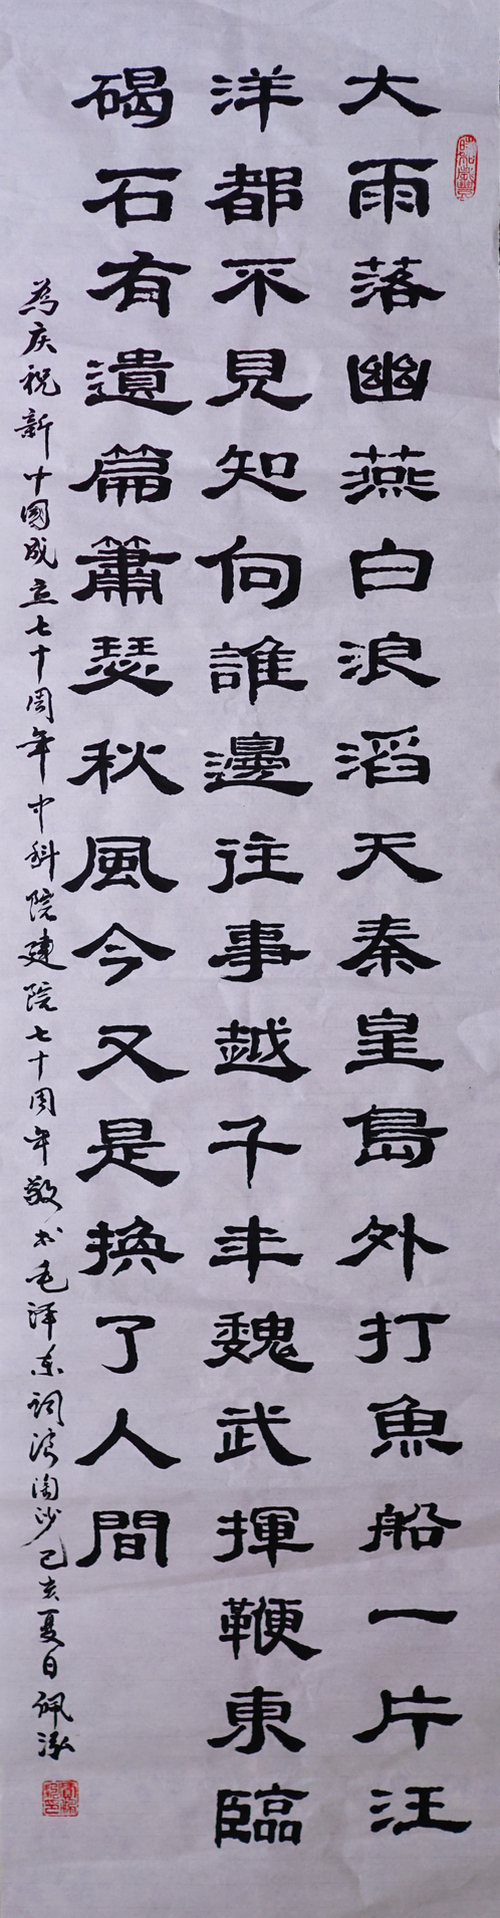 大雨落幽燕白浪滔天秦皇島外打魚船一片汪
洋都不見知向誰邊往事越千年魏武揮鞭東臨
碣石有遺篇簫瑟秋風今又是換了人間
為庆祝新中國成立七十周年中科院建院七十周年敬书毛泽东词浪淘沙己亥夏日佩泓